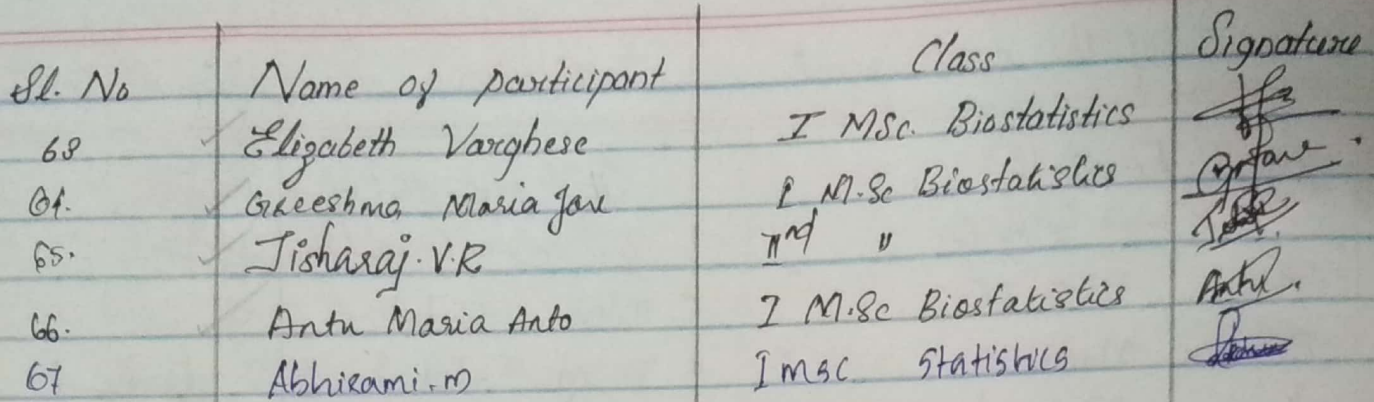 Sl. No Name of participant Class Signature
63 Elizabeth Varghese I MSc. Biostatistics
64. Greeshma Maria Jose I M.Sc Biostatistics
65. Jisharaj. V. R IInd "
66. Antu Maria Anto I M.Sc Biostatistics Antu.
67 Abhirami. m I msc Statistics